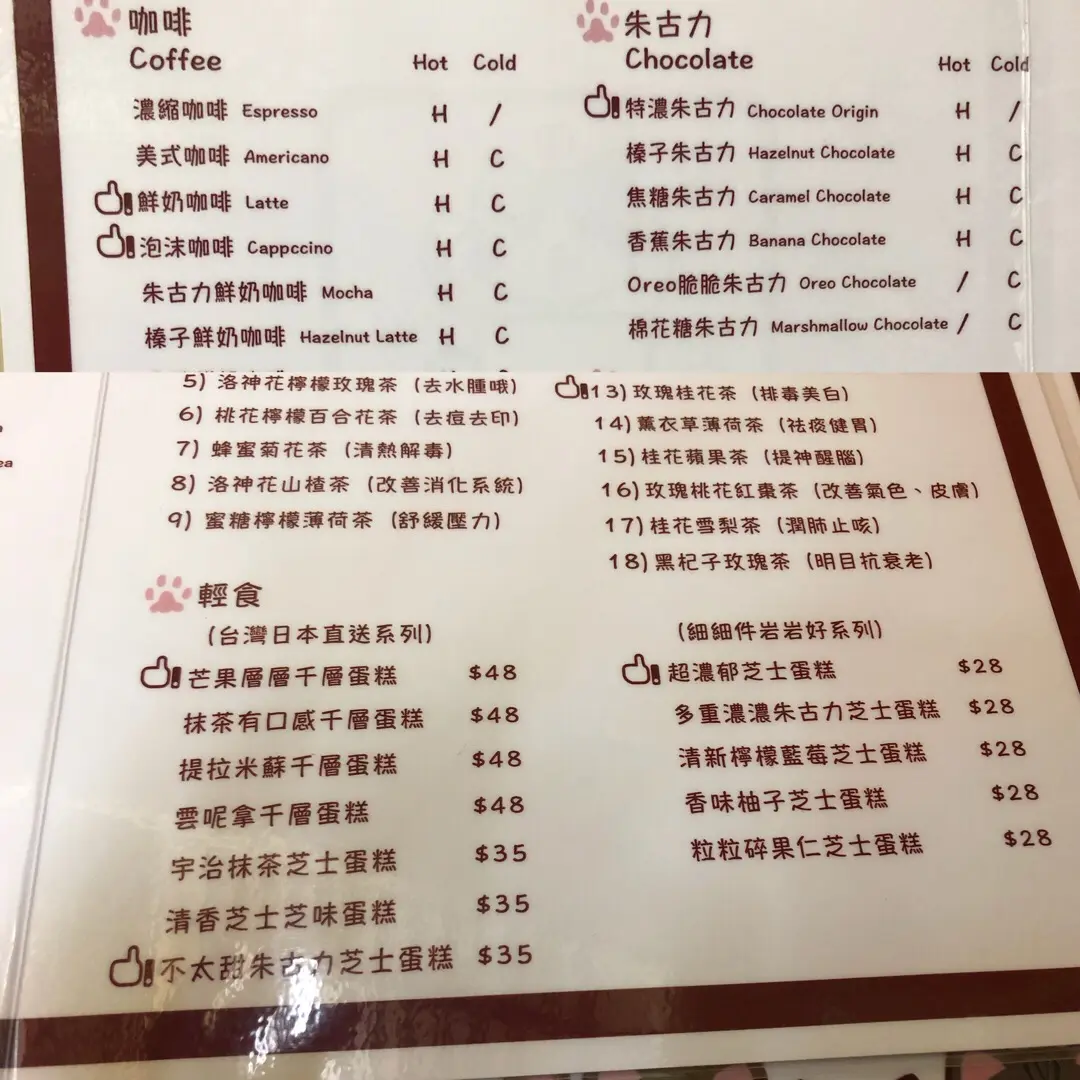 咖啡
Coffee Hot Cold
濃縮咖啡 Espresso H /
美式咖啡 Americano H C
鮮奶咖啡 Latte H C
泡沫咖啡 Cappccino H C
朱古力鮮奶咖啡 Mocha H C
榛子鮮奶咖啡 Hazelnut Latte H C
朱古力
Chocolate Hot Cold
特濃朱古力 Chocolate Origin H /
榛子朱古力 Hazelnut Chocolate H C
焦糖朱古力 Caramel Chocolate H C
香蕉朱古力 Banana Chocolate H C
Oreo脆脆朱古力 Oreo Chocolate / C
棉花糖朱古力 Marshmallow Chocolate / C
ea
5) 洛神花檸檬玫瑰茶 (去水腫哦)
6) 桃花檸檬百合花茶 (去痘去印)
7) 蜂蜜菊花茶 (清熱解毒)
8) 洛神花山楂茶 (改善消化系統)
9) 蜜糖檸檬薄荷茶 (舒緩壓力)
13) 玫瑰桂花茶 (排毒美白)
14) 薰衣草薄荷茶 (祛痰健胃)
15) 桂花蘋果茶 (提神醒腦)
16) 玫瑰桃花紅棗茶 (改善氣色、皮膚)
17) 桂花雪梨茶 (潤肺止咳)
18) 黑杞子玫瑰茶 (明目抗衰老)
輕食
(台灣日本直送系列)
芒果層層千層蛋糕 $48
抹茶有口感千層蛋糕 $48
提拉米蘇千層蛋糕 $48
雲呢拿千層蛋糕 $48
宇治抹茶芝士蛋糕 $35
清香芝士芝味蛋糕 $35
不太甜朱古力芝士蛋糕 $35
(細細件岩岩好系列)
超濃郁芝士蛋糕 $28
多重濃濃朱古力芝士蛋糕 $28
清新檸檬藍莓芝士蛋糕 $28
香味柚子芝士蛋糕 $28
粒粒碎果仁芝士蛋糕 $28